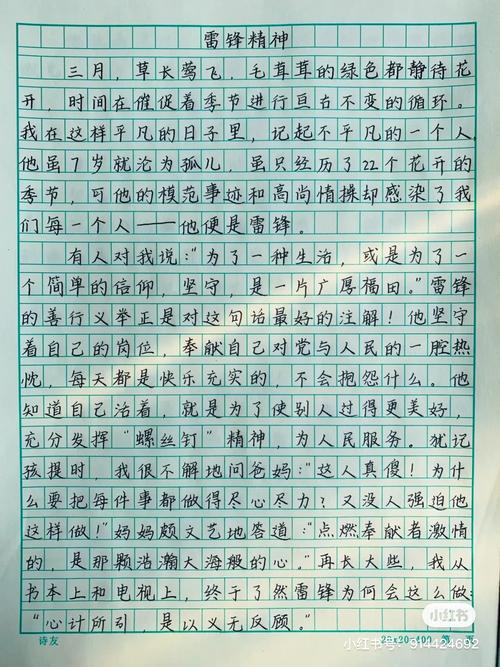 雷锋精神
三月，草长莺飞，毛茸茸的绿色都静待花
开，时间在催促着季节进行亘古不变的循环。
我在这样平凡的日子里，记起不平凡的一个人，
他虽7岁就沦为孤儿，虽只经历了22个花开的
季节，可他的模范事迹和高尚情操却感染了我
们每一个人——他便是雷锋。
有人对我说：“为了一种生活，或是为了一
个简单的信仰，坚守，是一片广厚福田。”雷锋
的善行义举正是对这句话最好的注解！他坚守
着自己的岗位，奉献自己对党与人民的一腔热
忱，每天都是快乐充实的，不会抱怨什么。他
知道自己活着，就是为了使别人过得更美好，
充分发挥“螺丝钉”精神，为人民服务。犹记
孩提时，我很不解地问爸妈：“这人真傻！为什
么要把每件事都做得尽心尽力？又没人强迫他
这样做！”妈妈颇文艺地答道：“点燃奉献者激情
的，是那颗浩瀚大海般的心。”再长大些，我从
书本上和电视上，终于了然雷锋为何会这么做：
“心之所引，是以义无反顾。”
小红书
诗友
20×20=400 第 页
小红书号：914424692